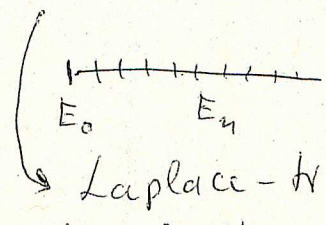 E₀ Eₙ
Laplace - tr